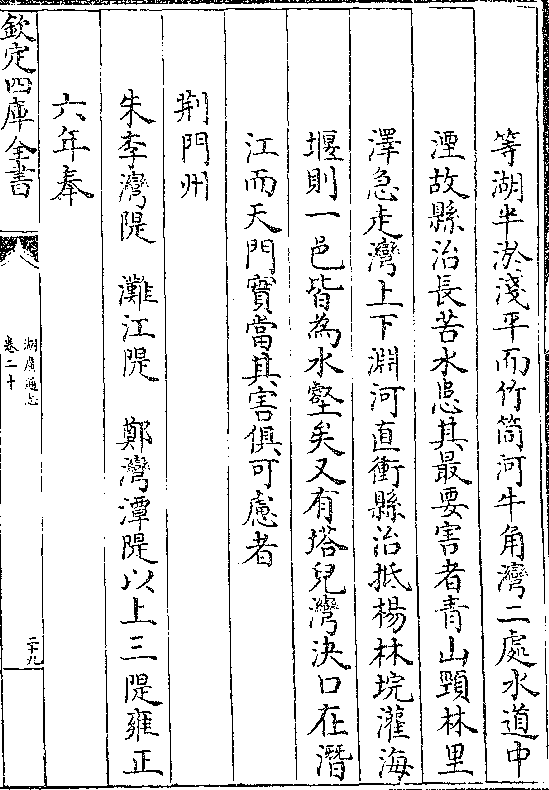 等湖半淤淺平而竹筒河牛角灣二處水道中
湮故縣治長苦水患其最要害者青山頸林里
澤急走灣上下淵河直衝縣治抵楊林垸灌海
堰則一邑皆為水壑矣又有塔兒灣決口在潛
江而天門實當其害俱可慮者
荆門州
朱李灣隄　灘江隄　鄭灣潭隄以上三隄雍正
六年奉
欽定四庫全書
湖廣通志
卷二十
二十九